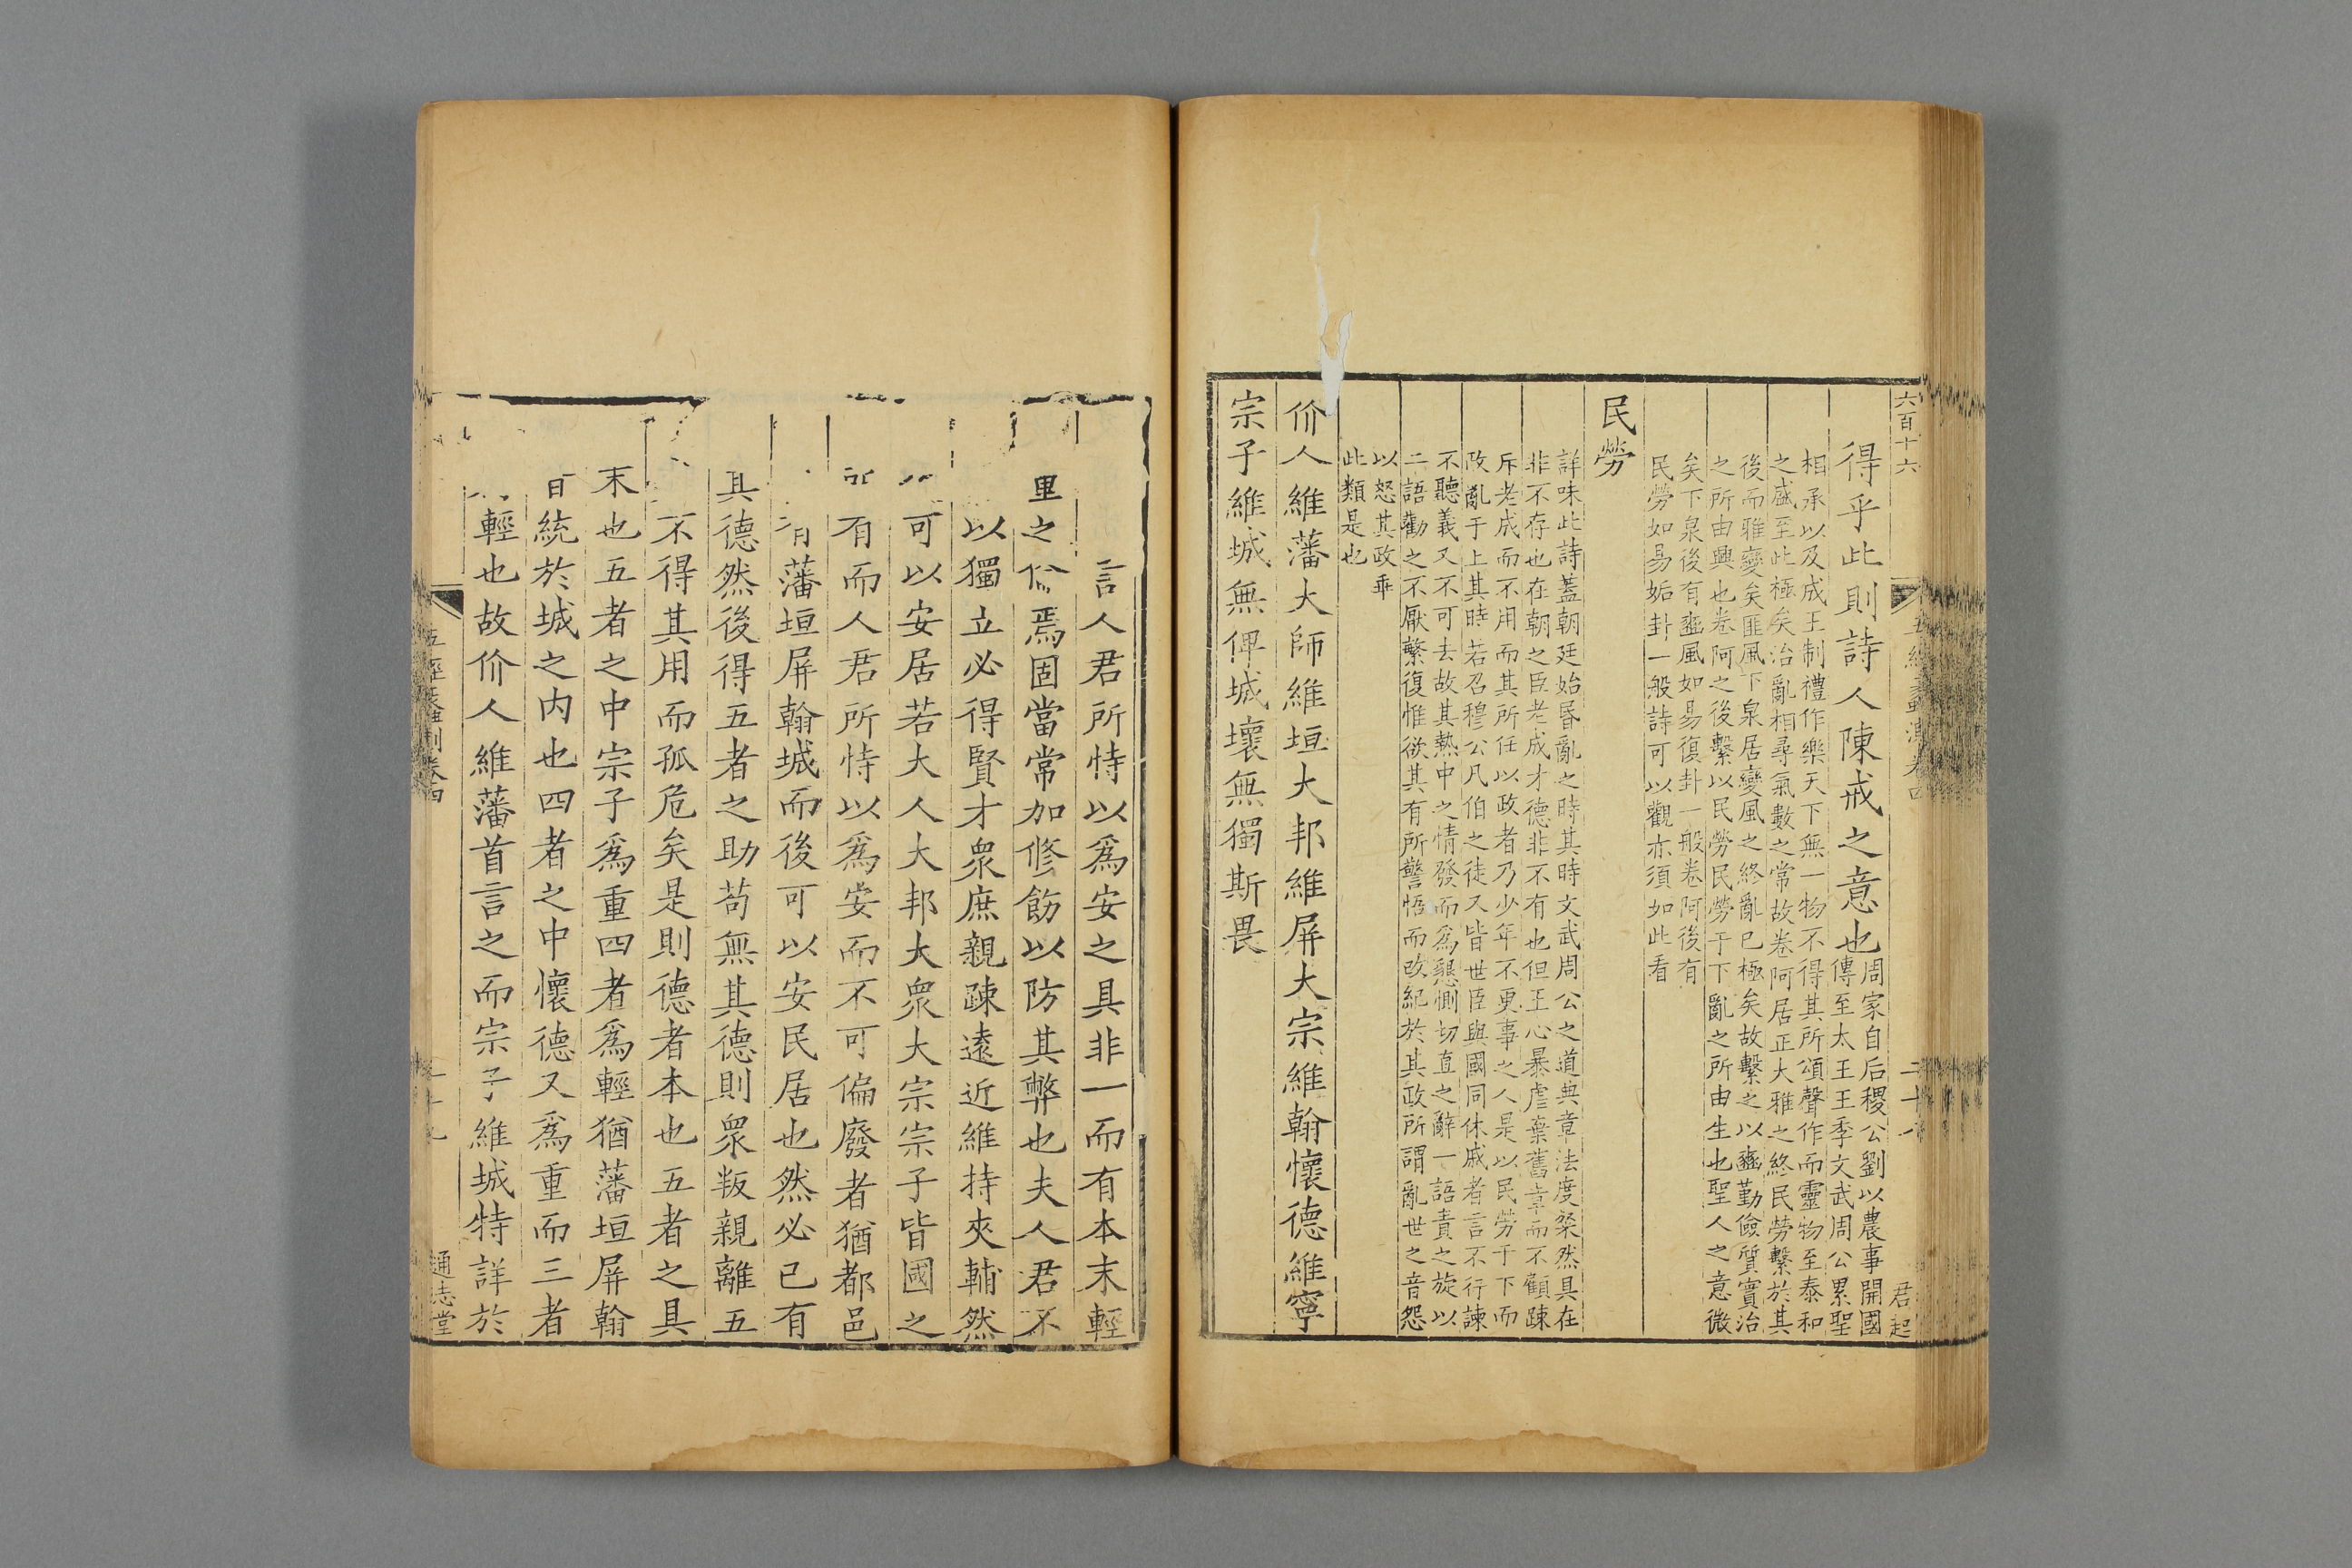 六百十六
君起
得乎此則詩人陳戒之意也周家自后稷公劉以農事開國
傳至太王王季文武周公累聖
相承以及成王制禮作樂天下無一物不得其所頌聲作而靈物至泰和
之盛至此極矣治亂相尋氣數之常故卷阿居正大雅之終民勞繫於其
後而雅變矣匪風下泉居變風之終亂已極矣故繫之以豳勤儉質實治
之所由興也卷阿之後繫以民勞民勞于下亂之所由生也聖人之意微
矣下泉後有豳風如易復卦一般卷阿後有
民勞如易姤卦一般詩可以觀亦須如此看
民勞
詳味此詩蓋朝廷始昏亂之時其時文武周公之道典章法度粲然具在
非不存也在朝之臣老成才德非不有也但王心暴虐棄舊章而不顧踈
斥老成而不用而其所任以政者乃少年不更事之人是以民勞于下而
政亂于上其時若召穆公凡伯之徒又皆世臣與國同休戚者言不行諫
不聽義又不可去故其熱中之情發而爲懇惻切直之辭一語責之旋以
二語勸之不厭繁復惟欲其有所警悟而改紀於其政所謂亂世之音怨
以怒其政乖
此類是也
价人維藩大師維垣大邦維屏大宗維翰懷德維寧
宗子維城無俾城壞無獨斯畏
言人君所恃以爲安之具非一而有本末輕
里之 焉固當常加修飭以防其弊也夫人君不
以獨立必得賢才衆庶親踈遠近維持夾輔然
可以安居若大人大邦大衆大宗宗子皆國之
有而人君所恃以爲安而不可偏廢者猶都邑
有藩垣屏翰城而後可以安民居也然必已有
其德然後得五者之助苟無其德則衆叛親離五
不得其用而孤危矣是則德者本也五者之具
末也五者之中宗子爲重四者爲輕猶藩垣屏翰
統於城之内也四者之中懷德又爲重而三者
輕也故价人維藩首言之而宗子維城特詳於
通志堂